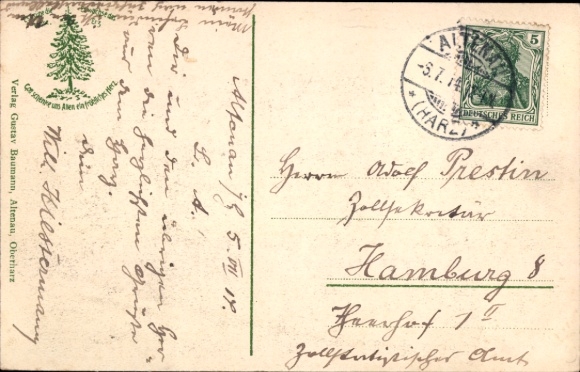 Gott schenke uns Allen ein fröhliches Herz
Verlag Gustav Baumann, Altenau, Oberharz
Altenau i/H 5. VII 14.
L. A.!
Dir und den übrigen Her-
ren die herzlichsten Grüße
aus dem Harz.
Dein
Will. Klostermann
ALTENAU
-6.7.14
* (HARZ) *
5
DEUTSCHES REICH
Herrn Adolf Prestin
Zollsekretär
Hamburg 8
Heerhof 1 II
Zollstatistisches Amt